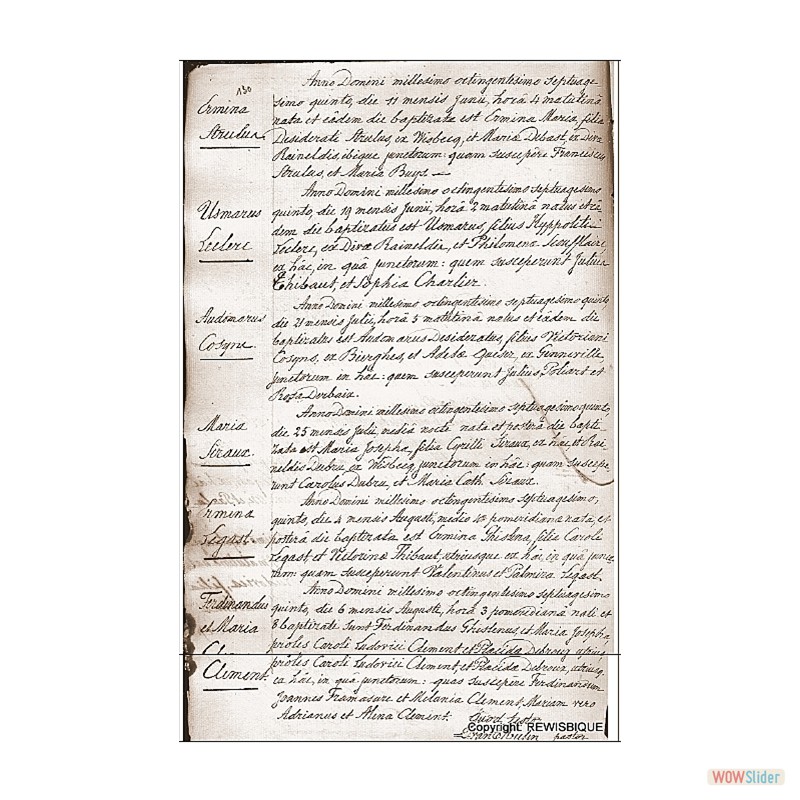 130
Anno Domini millesimo octingentesimo septuage-
simo quinto, die 11 mensis Junii, horâ 4 matutinâ
nata et eâdem die baptizata est Ermina Maria, filia
Desiderati Strulus, ex Wisbecq, et Maria Debast, ex Divæ
Raineldis, ibique junctorum: quam suscepêre Franciscus
Strulus, et Maria Buys.
Ermina
Strulus.
Anno Domini millesimo octingentesimo septuagesimo
quinto, die 19 mensis Junii, horâ 2 matutinâ natus et eâ-
dem die baptizatus est Usmarus, filius Hyppoliti
Leclerc, ex Divæ Raineldis, et Philomena
ex hâc, in quâ junctorum: quem susceperunt Julius
Thibaut, et Sophia Charlier.
Usmarus
Leclerc
Anno Domini millesimo octingentesimo septuagesimo quinto
die 21 mensis Julii, horâ 5 matutinâ natus et eâdem die
baptizatus est Audomarus Desideratus, filius Victoriani
Cosyns, ex Bierghes, et Adela ex
junctorum in hâc: quem susceperunt Julius et
Rosa Derbaix.
Audomarus
Cosyns.
Anno Domini millesimo octingentesimo septuagesimo quinto,
die 25 mensis Julii, mediâ nocte nata et posterâ die bapti-
zata est Maria Josepha, filia Cyrilli Siraux, ex hâc et Rai-
neldis Dubru, ex Wisbecq, junctorum in hâc: quam suscepe-
runt Carolus Dubru, et Maria Cath. Siraux.
Maria
Siraux.
Anno Domini millesimo octingentesimo septuagesimo,
quinto, die 4 mensis Augusti, pomeridianâ nata, et
posterâ die baptizata est Ermina Ghislna, filia Caroli
Legast, et Victorina Thibaut, utriusque ex hâc, in quâ junc-
torum: quam susceperunt Valentinus et Palmira Legast.
Ermina
Legast.
Anno Domini millesimo octingentesimo septuagesimo
quinto, die 6 mensis Augusti, horâ 3 pomeridianâ nati et
baptizati sunt Ferdinandus Ghislenus, et Maria Josepha,
proles Caroli Ludovici Clement, et Placida
proles Caroli Ludovici Clement, et Placida
ex hâc, in quâ junctorum: quos suscepêre Ferdinandum
Joannes Framasure et Melania Clement, Mariam vero
Adrianus et Alina Clement.
Ferdinandus
et Maria
Clement.
pastor
Copyright REWISBIQUE
WOWSlider